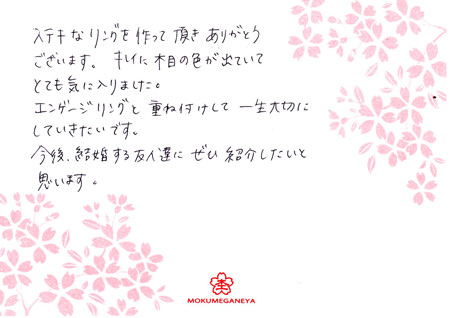 ステキなリングを作って頂きありがとう
ございます。キレイに木目の色が出ていて
とても気に入りました。
エンゲージリングと重ね付けして一生大切に
していきたいです。
今後、結婚する友人達にぜひ紹介したいと
思います。
MOKUMEGANEYA